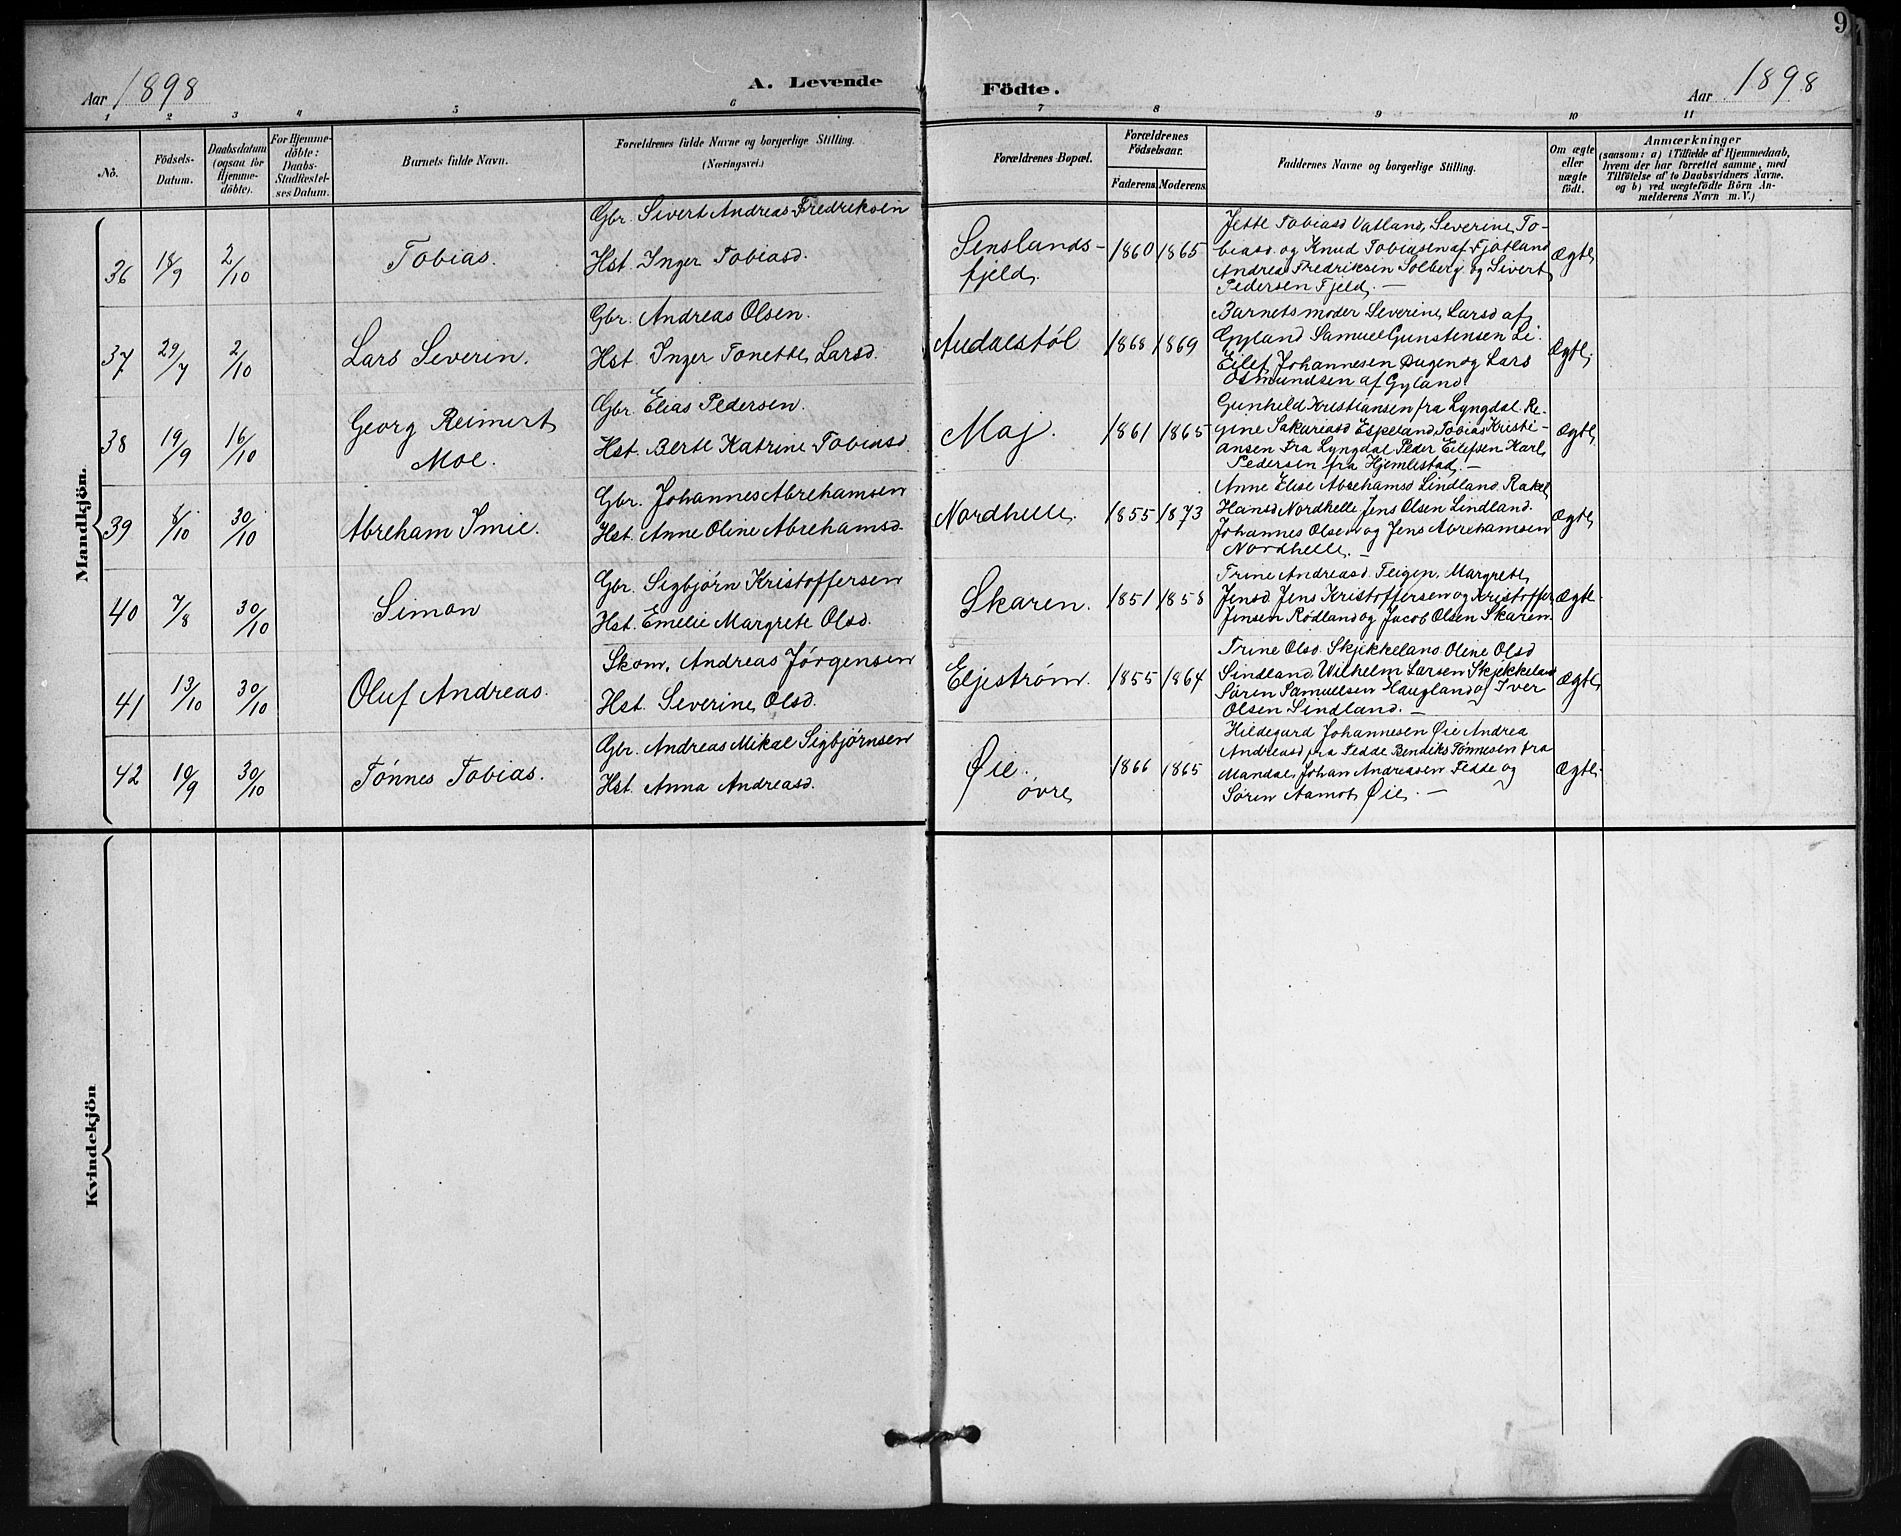 9
Aar 1898
A. Levende
Födte.
Aar 1898
1 2 3 4 5 6 7 8 9 10 11
No.
Födsels-
Datum.
Daabsdatum
(ogsaa for
Hjemme-
döbte).
For Hjemme-
döbte:
Daabs-
Stadfæstel-
ses Datum.
Barnets fulde Navn.
Forældrenes fulde Navne og borgerlige Stilling.
(Næringsvei.)
Forældrenes Bopæl.
Forældrenes
Födselsaar.
Faderens. Moderens.
Faddernes Navne og borgerlige Stilling.
Om ægte
eller
uægte
födt.
Anmærkninger
(saasom: a) i Tilfælde af Hjemmedaab,
hvem der har forrettet samme, med
Tilföielse af to Daabsvidners Navne.
og b) ved uægtefödte Börn An-
melderens Navn m. V.)
Mandkjön.
36 18/9 2/10 Tobias.
Gbr. Sivert Andreas Fredriksen
Hst. Inger Tobiasd.
Senslands-
fjeld.
1860 1865
Jette Tobiasd Vatland, Severine To-
biasd. og Knud Tobiasen af Fjotland
Andrea Fredriksen Solberg og Sivert
Pedersen Fjeld. —
Ægte
37 29/7 2/10 Lars Severin.
Gbr. Andreas Olsen.
Hst. Inger Tonette Larsd.
Audalstøl
1868 1869
Barnets moder Severine Larsd af
Gyland Samuel Gunstensen Li
Eilef Johannesen Dugen og Lars
Osmundsen af Gyland
Ægte.
38 19/9 16/10 Georg Reimert
Moe.
Gbr. Elias Pedersen.
Hst. Berte Katrine Tobiasd
Moj.
1861 1865
Gunhild Kristiansen fra Lyngdal Re-
gine Sakariasd Espeland, Tobias Kristi-
ansen fra Lyngdal Peder Eilefsen Karl
Pedersen fra Hjemlestad. —
Ægte
39 /10 30/10 Abreham Imie.
Gbr. Johannes Abrehamsen
Hst. Anne Oline Abrehamsd.
Nordhelle.
1855 1873
Anne Elise Abrehamsd Lindland Rakel
Hansd Nordhelle Jens Olsen Lindland.
Johannes Olsen og Jens Abrehamsen
Nordhelle. —
Ægte
40 7/8 30/10 Simon
Gbr. Sigbjørn Kristoffersen
Hst. Emelie Margrete Olsd.
Skaren.
1851 1858
Trine Andreasd. Feigen, Margrete
Jensd. Jens Kristoffersen og Kristoffer
Jensen Rødland og Jacob Olsen Skaren
Ægte
41 13/10 30/10 Oluf Andreas.
Skom. Andreas Jørgensen
Hst. Severine Olsd.
Eljestrøm.
1855 1864
Trine Olsd. Skjekkeland Oline Olsd
Sindland, Wilhelm Larsen Skjekkeland
Søren Samuelsen Haugland og Iver
Olsen Sindland. —
Ægte
42 19/9 30/10 Tønnes Tobias.
Gbr. Andreas Mikal Sigbjørnsen
Hst. Anna Andreasd.
Øie.
øvre
1866 1865
Hildegard Johannesen Øie Andrea
Andreasd fra Fedde Bendiks Tønnesen fra
Mandal, Johan Andreasen Fedde og
Søren Aamot Øie. —
Ægte
Kvindekjön